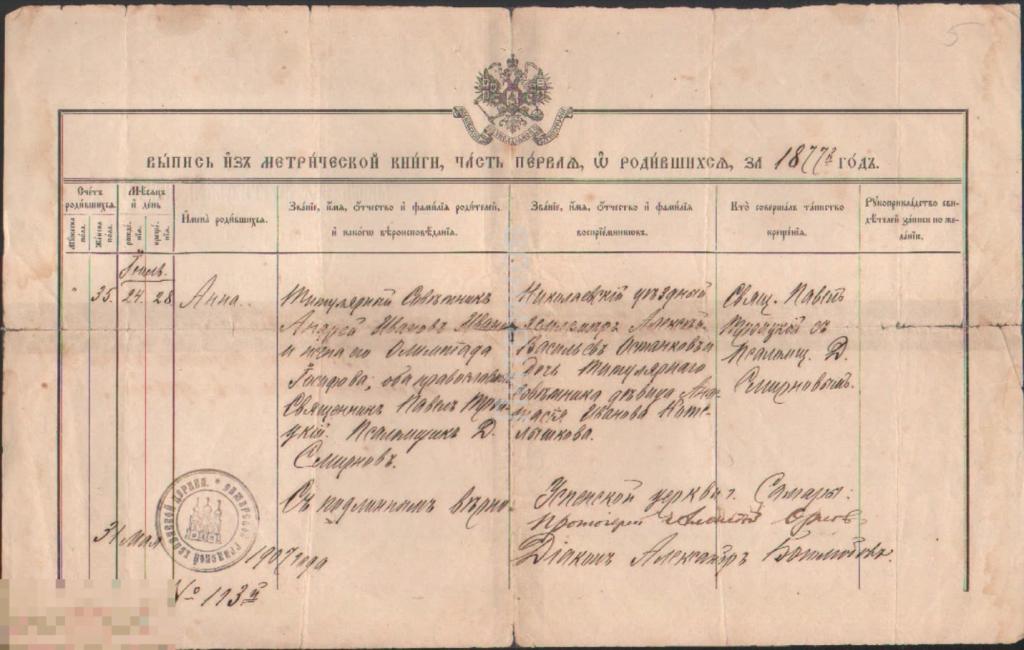 5
ВЫПИСЬ ИЗЪ МЕТРИЧЕСКОЙ КНИГИ, ЧАСТЬ ПЕРВАЯ, Ѿ РОДИВШИХСЯ, ЗА 1877й ГОДЪ.
Счетъ родившихся.
Мужеска пола.
Женска пола.
Мѣсяцъ и день
рожденія.
крещенія.
Имена родившихся.
Званіе, имя, ѻтчество и фамилія родителей, и какогѡ вѣроисповѣданія.
Званіе, имя, ѻтчество и фамилія воспріемникѡвъ.
Кто совершалъ таинство крещенія.
Рукоприкладство свидѣтелей записи по желанію.
"
35.
24.
28
Анна.
Титулярный Совѣтникъ
Андрей Ивановъ
и жена его Олимпіада
Іосифова, оба православн
Священникъ Павелъ
Псаломщикъ Д.
Смирновъ.
Николаевскій уѣздной
землемѣръ Алексѣй
Васильевъ Останковъ и
дочь Титулярнаго
совѣтника дѣвица Анас
тасія Иванова
Свящ. Павелъ
съ
Псаломщ. Д.
Смирновымъ.
Съ подлиннымъ вѣрно:
Успенской церкви г. Самары:
Протоіерей
Діаконъ Александръ
31 Мая 1907 года
№ 113й